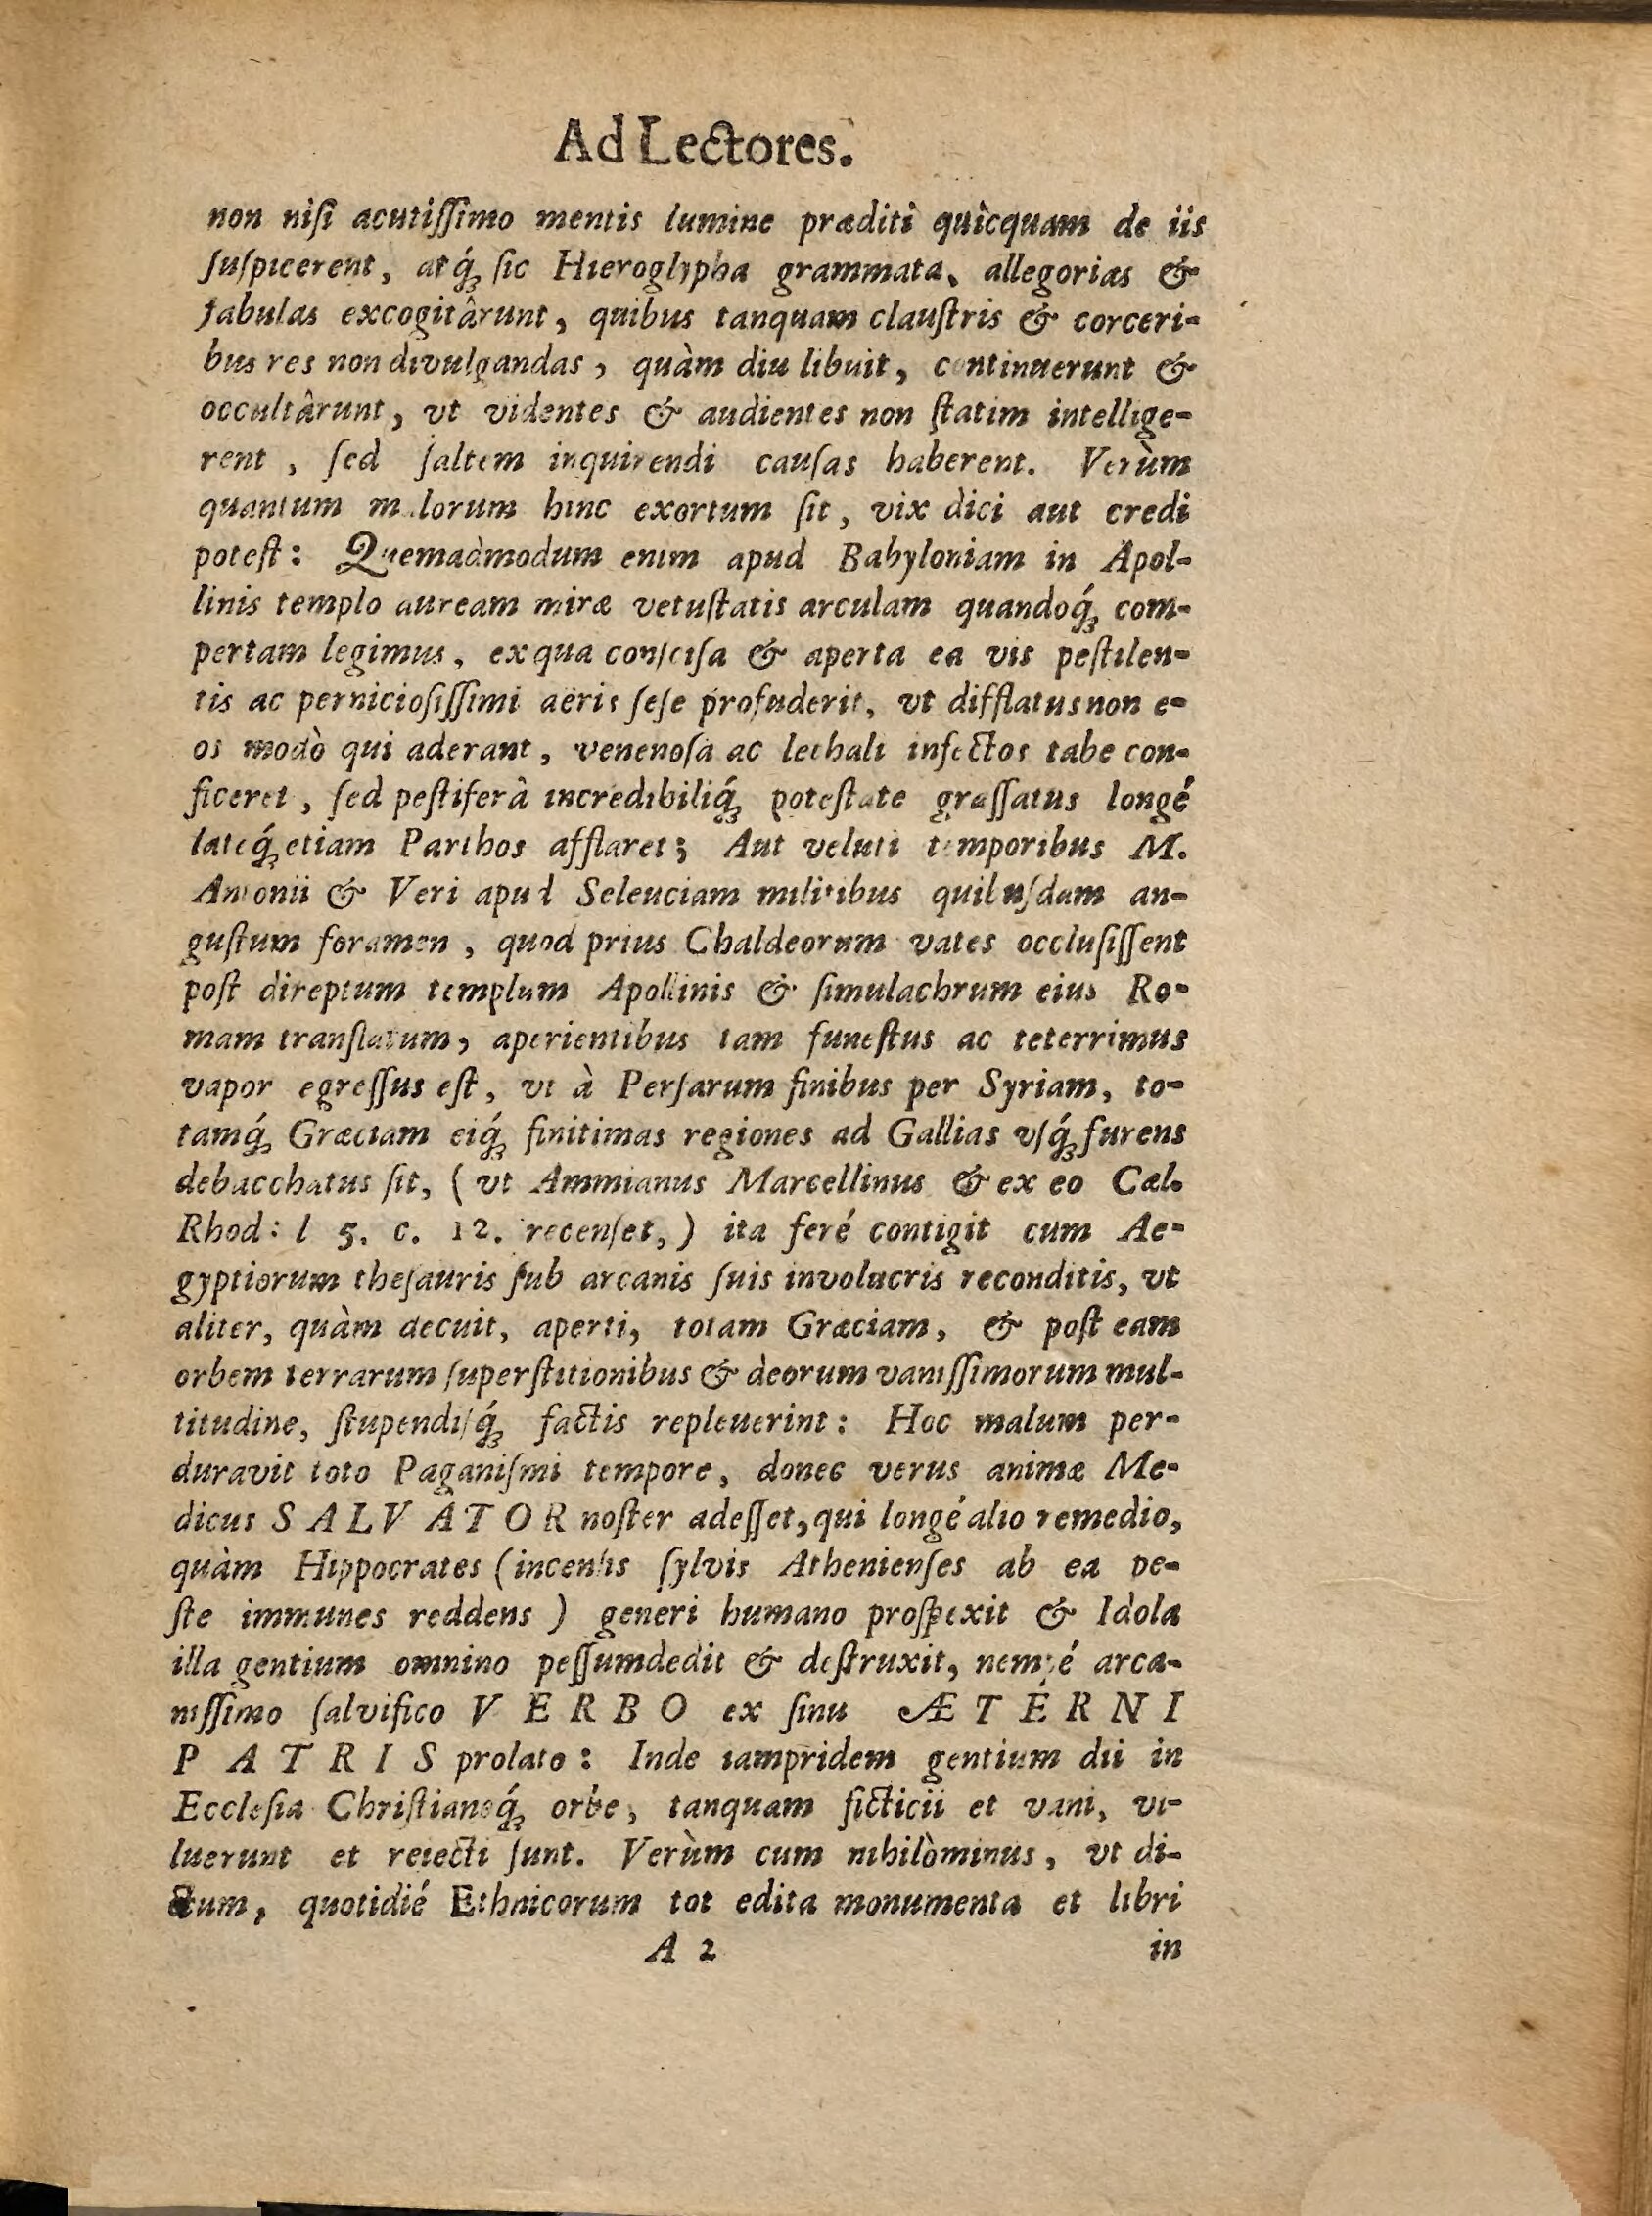 Ad Lectores.
non niſi acutiſſimo mentis lumine præditi quicquam de iis
ſuſpicerent, atq́ꝫ ſic Hieroglypha grammata, allegorias &
fabulas excogitârunt, quibus tanquam clauſtris & corceri-
bus res non divulgandas, quàm diu libuit, continuerunt &
occultârunt, vt videntes & audientes non ſtatim intellige-
rent, ſed ſaltem inquirendi cauſas haberent. Verùm
quantum malorum hinc exortum ſit, vix dici aut credi
poteſt: Quemadmodum enim apud Babyloniam in Apol-
linis templo auream miræ vetuſtatis arculam quandoq́ꝫ com-
pertam legimus, ex qua conſciſa & aperta ea vis peſtilen-
tis ac pernicioſiſſimi aëris ſeſe profuderit, vt difflatus non e-
os modò qui aderant, venenoſa ac lethali infectos tabe con-
ficeret, ſed peſtiferâ incredibiliq́ꝫ poteſtate graſſatus longé
lateq́ꝫ etiam Parthos afflaret; Aut veluti temporibus M.
Antonii & Veri apud Seleuciam militibus quibuſdam an-
guſtum foramen, quod prius Chaldeorum vates occluſiſſent
poſt direptum templum Apollinis & ſimulachrum eius Ro-
mam tranſlatum, aperientibus tam funeſtus ac teterrimus
vapor egreſſus eſt, vt à Perſarum finibus per Syriam, to-
tamq́ꝫ Græciam eiq́ꝫ finitimas regiones ad Gallias vſq́ꝫ furens
debacchatus ſit, (vt Ammianus Marcellinus & ex eo Cæl.
Rhod: l 5. c. 12. recenſet,) ita feré contigit cum Ae-
gyptiorum theſauris ſub arcanis ſuis involucris reconditis, vt
aliter, quàm decuit, aperti, totam Græciam, & poſt eam
orbem terrarum ſuperſtitionibus & deorum vaniſſimorum mul-
titudine, ſtupendiſq́ꝫ factis repleuerint: Hoc malum per-
duravit toto Paganiſmi tempore, donec verus animæ Me-
dicus SALVATOR noſter adeſſet, qui longé alio remedio,
quàm Hippocrates (incenſis ſylvis Athenienſes ab ea pe-
ſte immunes reddens) generi humano proſpexit & Idola
illa gentium omnino peſſumdedit & deſtruxit, nempé arca-
niſſimo ſalvifico VERBO ex ſinu ÆTERNI
PATRIS prolato: Inde iampridem gentium dii in
Eccleſia Chriſtianoq́ꝫ orbe, tanquam ficticii et vani, vi-
luerunt et reiecti ſunt. Verùm cum nihilòminus, vt di-
ctum, quotidié Ethnicorum tot edita monumenta et libri
A 2 in